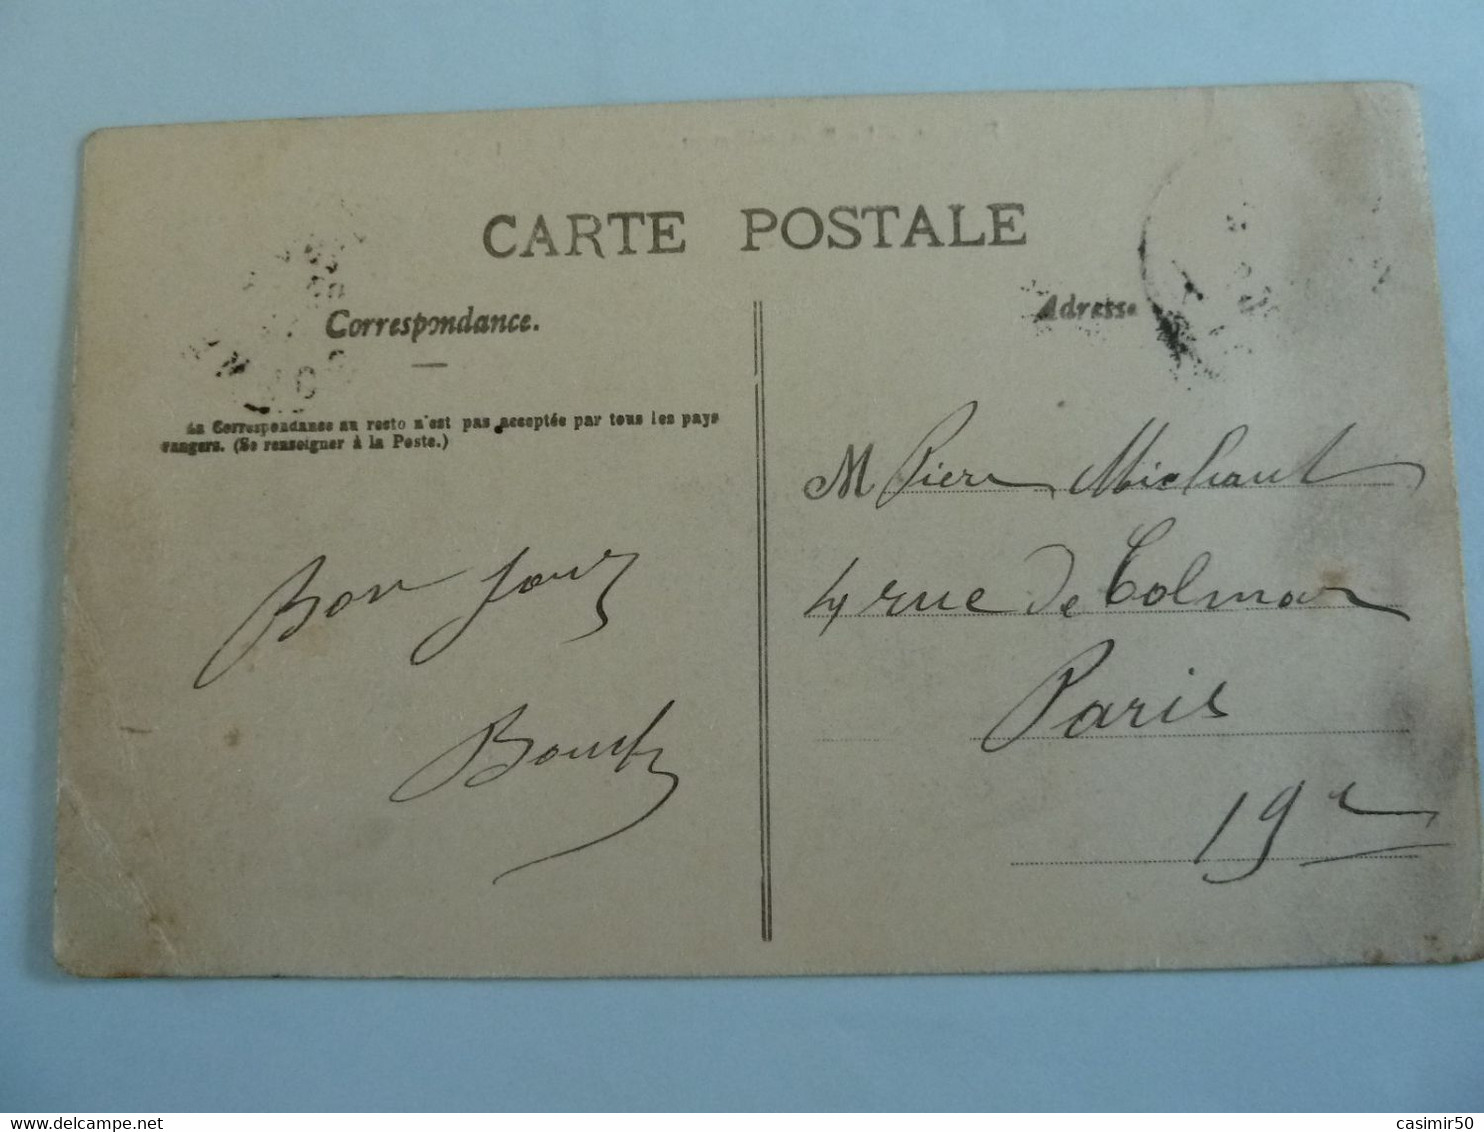 CARTE POSTALE
Correspondance.
Adresse
La Correspondance au recto n'est pas acceptée par tous les pays
rangers. (Se renseigner à la Poste.)
M Pierre Michaut
4 rue de Colmar
Paris
19e
Bon jour
casimir50